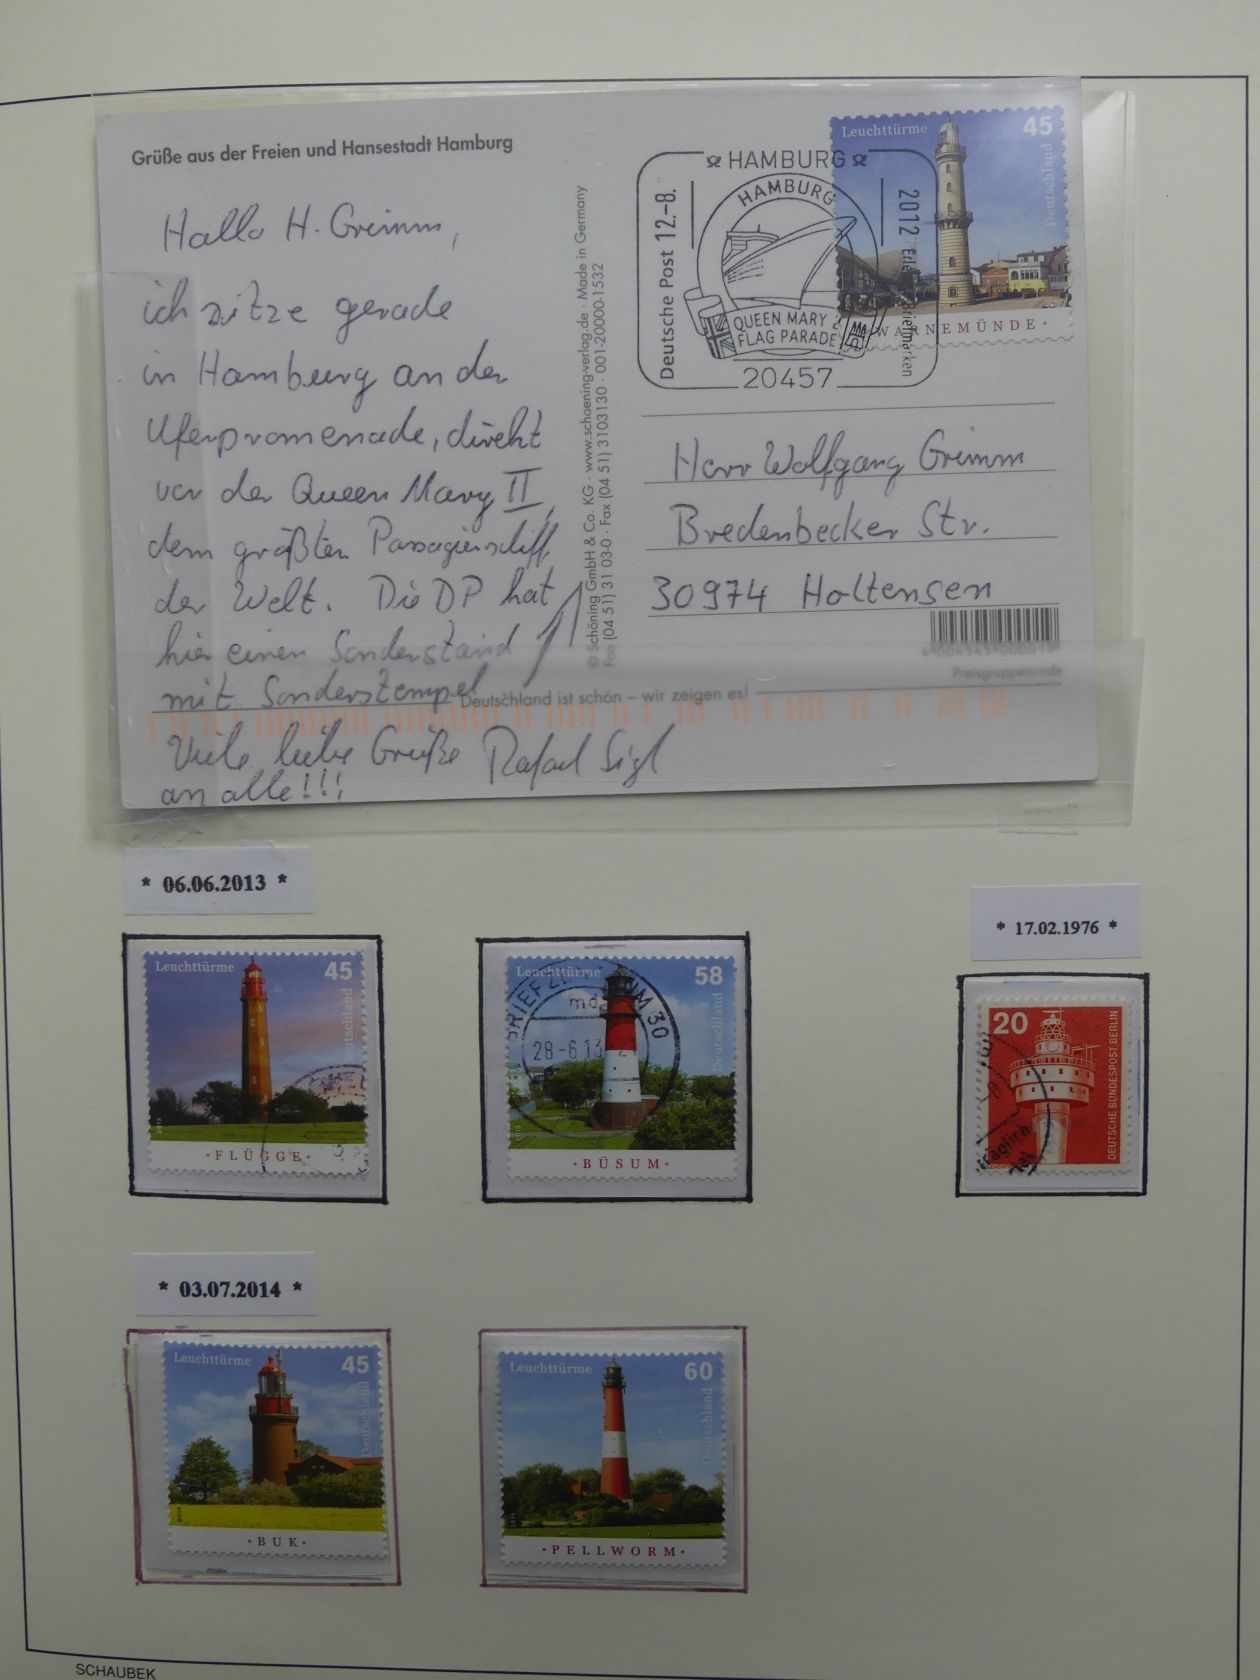 Grüße aus der Freien und Hansestadt Hamburg
Hallo H. Grimm,
ich sitze gerade
in Hamburg an der
Uferpromenade, direkt
vor der Queen Mary II,
dem größten Passagierschiff
der Welt. Die DP hat
hier einen Sonderstand
mit Sonderstempel
Viele liebe Grüße Rafael Sigl
an alle!!!
© Schöning GmbH & Co. KG · www.schoening-verlag.de · Made in Germany
Fon (04 51) 31 03-0 · Fax (04 51) 3103130 · 001-20000-1532
HAMBURG
Deutsche Post 12.-8.
2012 Erle Briefmarken
HAMBURG
QUEEN MARY 2
FLAG PARADE
20457
Leuchttürme 45
Deutschland
2006
WARNEMÜNDE·
Herr Wolfgang Grimm
Bredenbecker Str.
30974 Holtensen
4 004545 000019
Preisgruppencode
Deutschland ist schön – wir zeigen es!
* 06.06.2013 *
Leuchttürme 45
Deutschland
2013
·FLÜGGE·
Leuchttürme 58
Deutschland
BRIEFZENTRUM 30
md
28-6.13
2013
·BÜSUM·
* 17.02.1976 *
20
DEUTSCHE BUNDESPOST BERLIN
* 03.07.2014 *
Leuchttürme 45
Deutschland
2014
·BUK·
Leuchttürme 60
Deutschland
2014
·PELLWORM·
SCHAUBEK